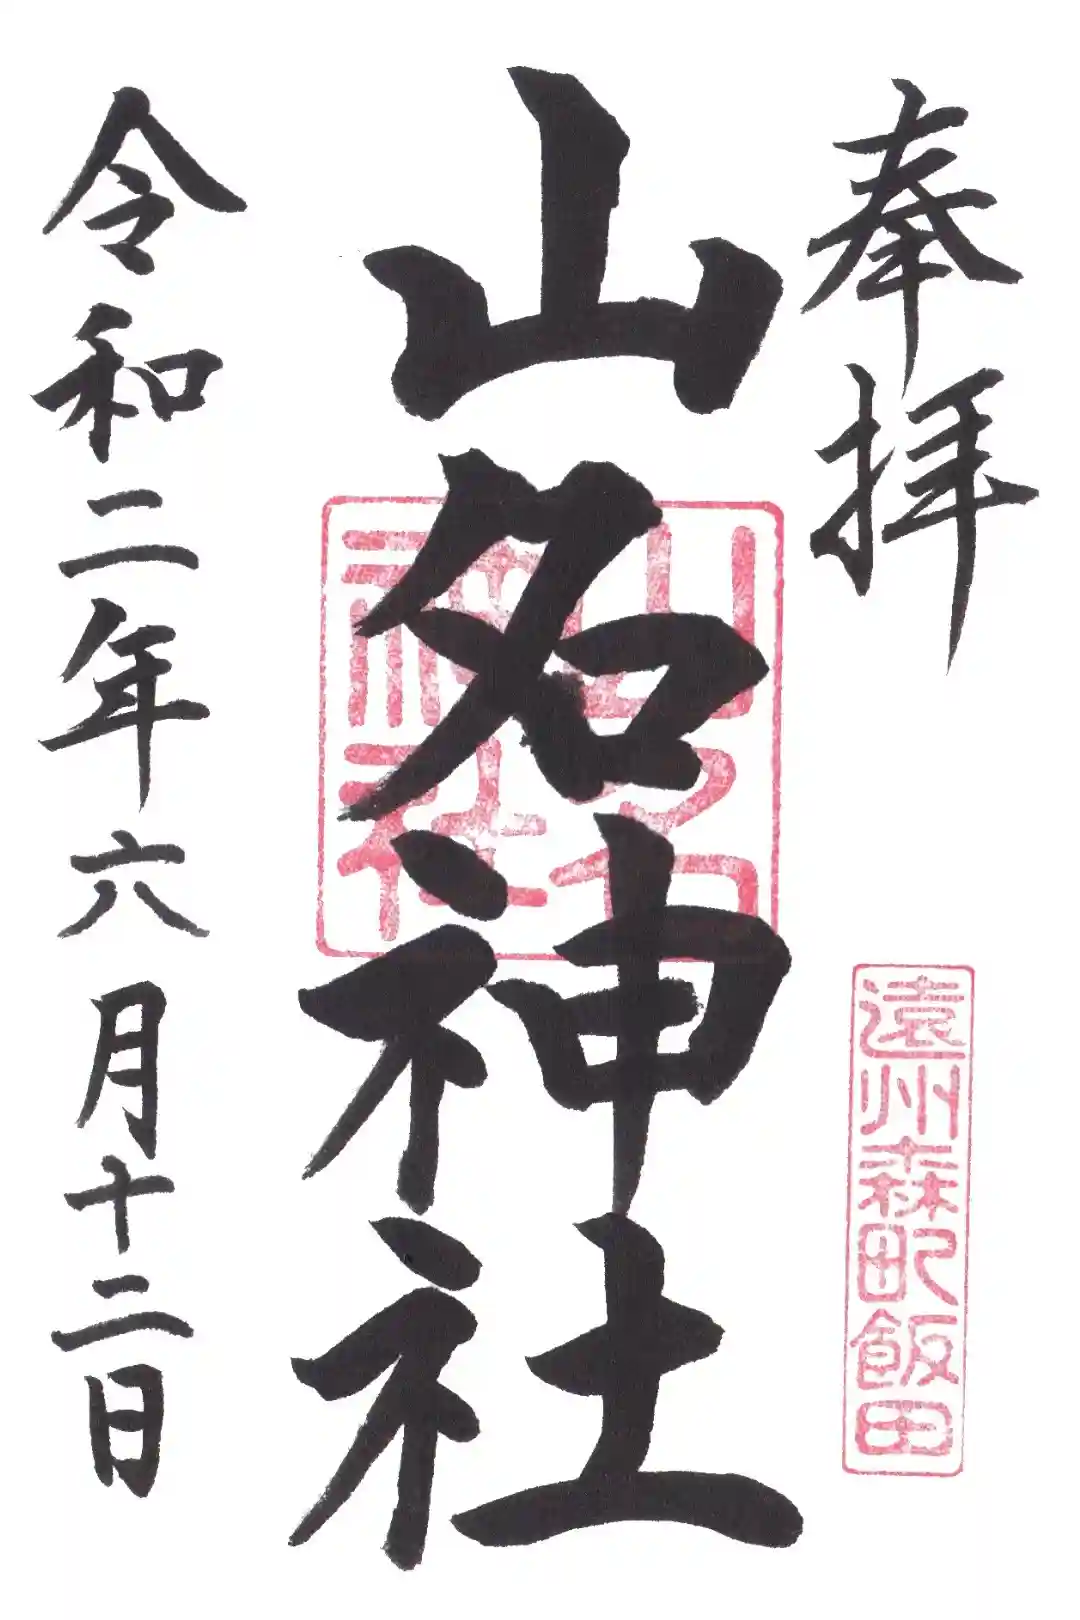 奉拝
遠州森町飯田
山名神社
山名神社
令和二年六月十二日